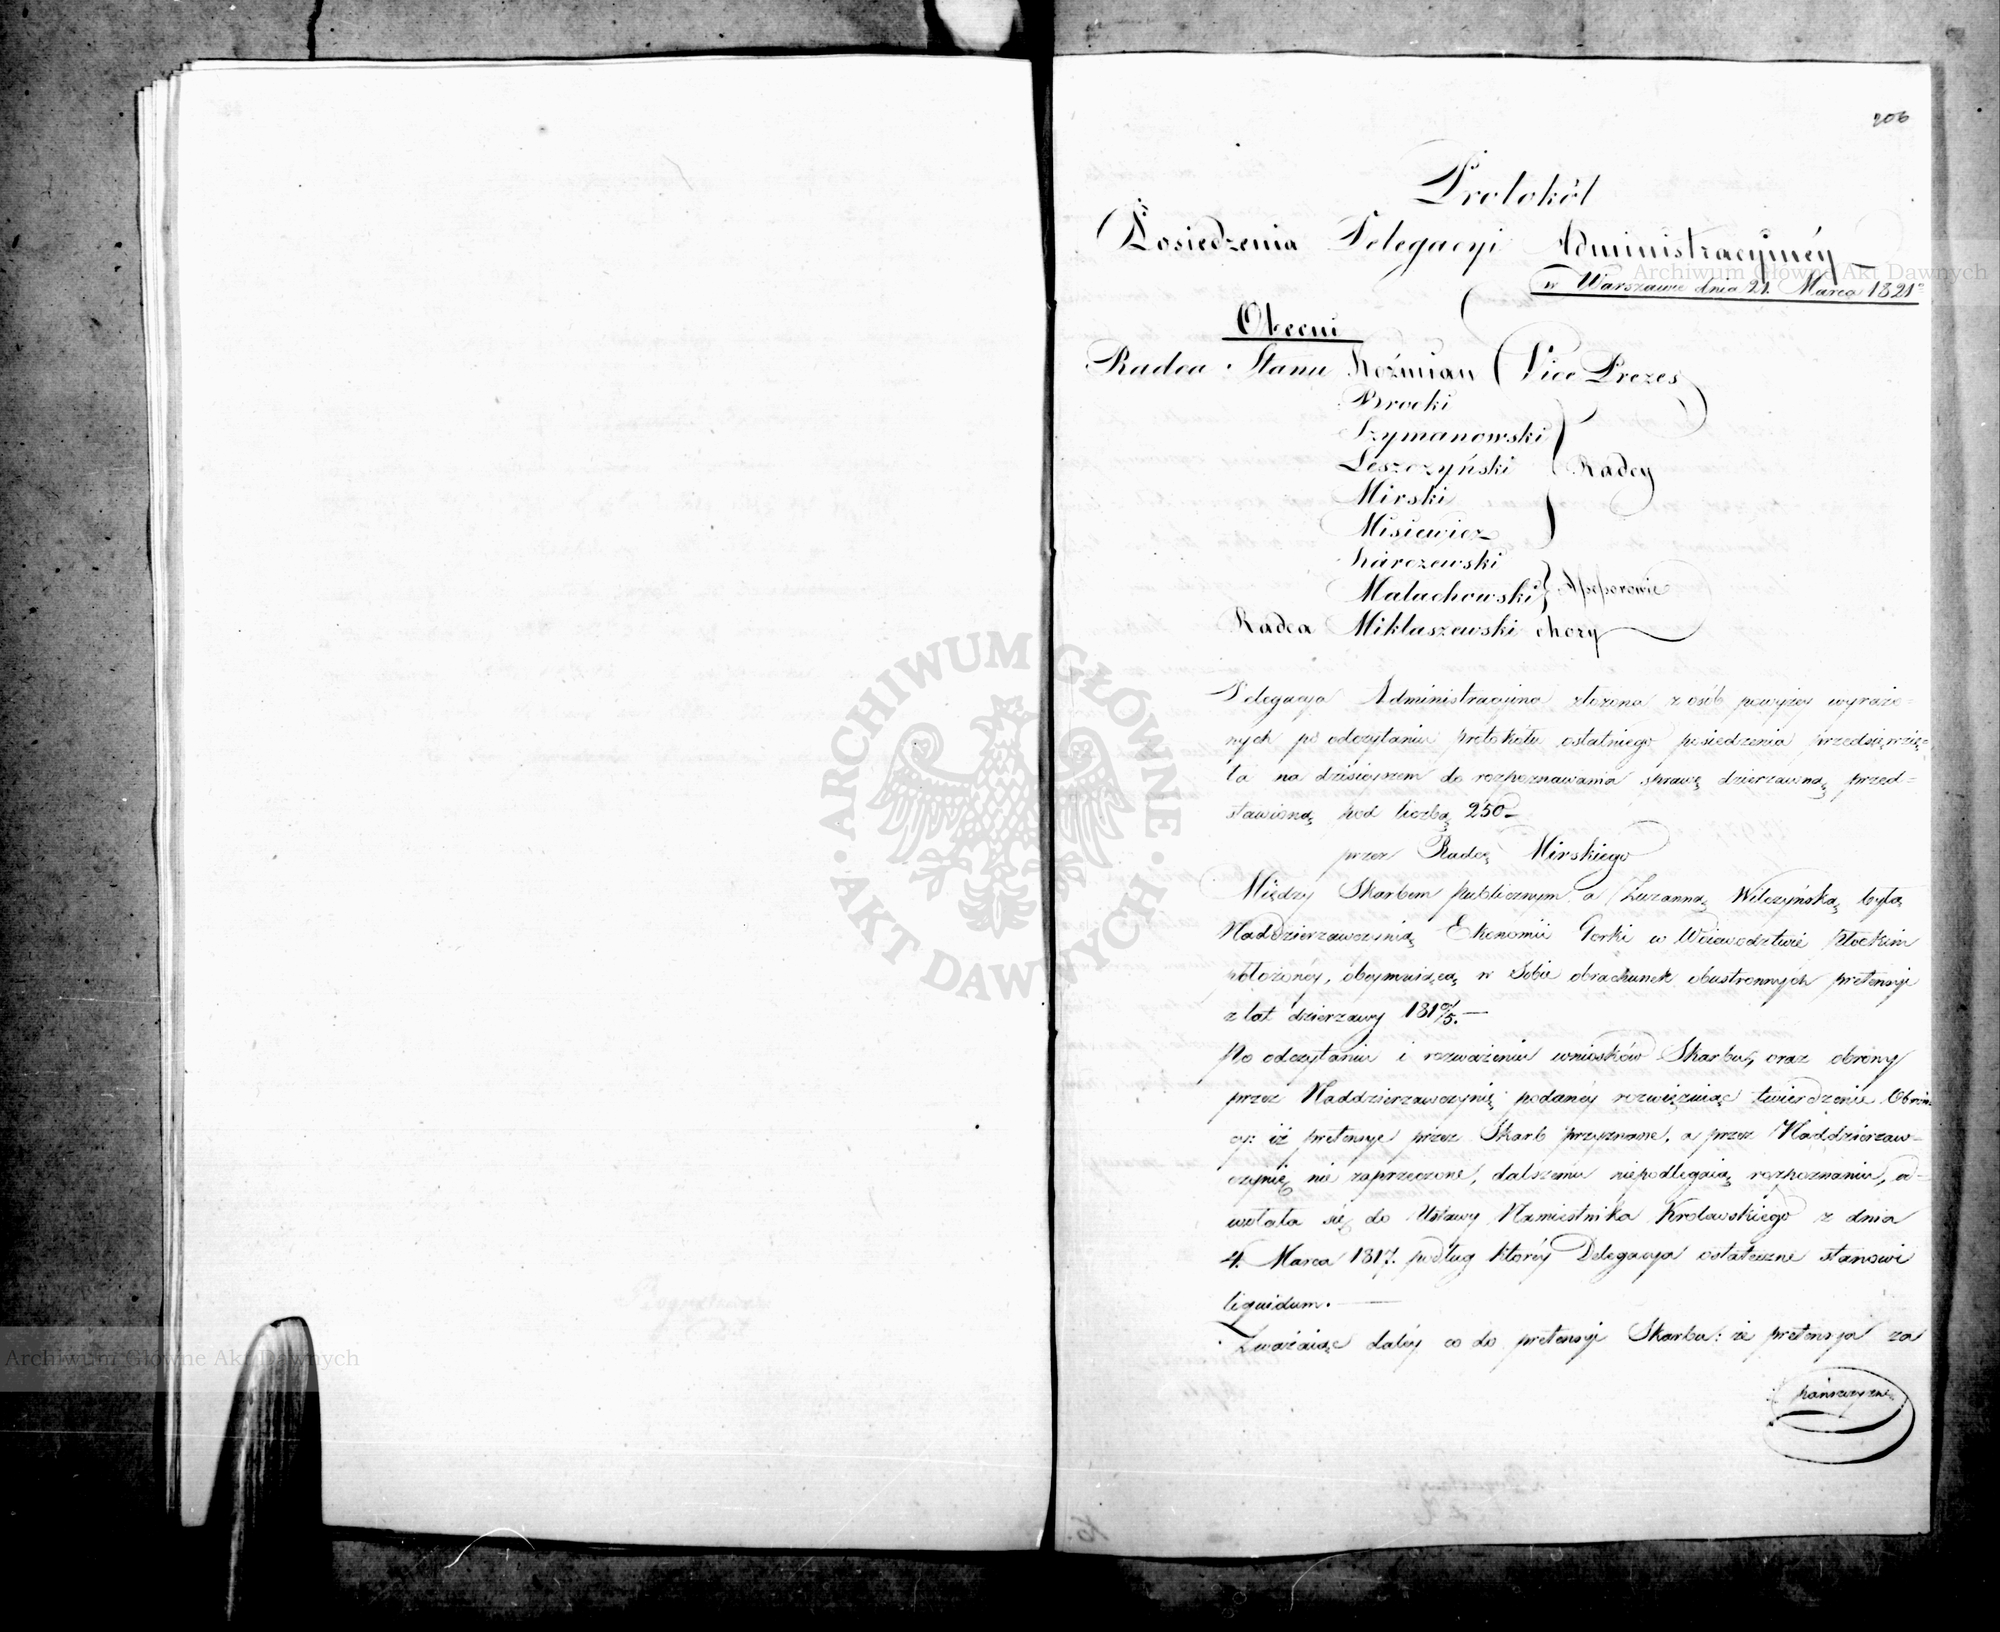 206
Protokół
Posiedzenia Delegacyi Administracyinéy
w Warszawie dnia 21. Marca 1821
Obecni
Radca Stanu Koźmian Vice Prezes
Brocki
Szymanowski
Leszczyński Radcy
Mirski
Misiewicz
Karczewski
Małachowski Assessorowie
Radca Miklaszewski chory
Delegacya Administracyina złożona z osób powyżey wyrażo=
nych po odczytaniu protokółu ostatniego posiedzenia przedsięwzię=
ła na dzisieyszem do rozpoznawania sprawę dzierżawną przed=
stawioną pod liczbą 250
przez Radcę Mirskiego
Między Skarbem publicznym a Zuzanną Wilczyńską byłą
Naddzierżawczynią Ekonomii Gorki w Woiewodztwie Płockim
położonéy, obeymuiącą w Sobie obrachunek obustronnych pretensyi
z lat dzierżawy
Po odczytaniu i rozważeniu wniosków Skarbu, oraz obrony
przez Naddzierżawczynię podanéy rozwiązuiąc twierdzenie Obron=
cy: iż pretensye przez Skarb przyznane, a przez Naddzierzaw=
czynię nie zaprzeczone, dalszemu niepodlegaią rozpoznaniu, od=
wołała się do Ustawy Namiestnika Krolewskiego z dnia
4. Marca 1817. podług któréy Delegacya ostateczne stanowi
liquidum.
Zważaiąc daléy co do pretensyi Skarbu: że pretensya za
pańszczyznę
Archiwum Główne Akt Dawnych
Archiwum Główne Akt Dawnych
ARCHIWUM GŁÓWNE · AKT DAWNYCH ·